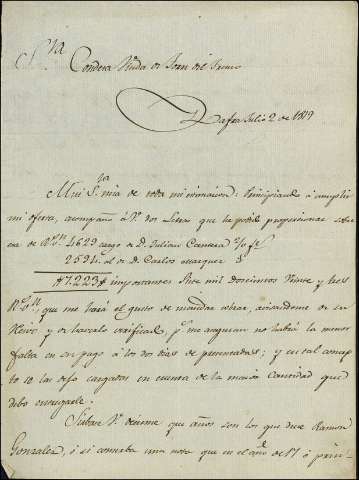 S.ra
Condesa V.da de Torre del Fresno
Zafra Julio 2 de 1819
Mui S.ra mia de toda mi atencion: Principiando á cumplir
mi oferta, acompaño á V. dos Letras que he podido proporcionar sobre
esa de R.s V.n 4629 cargo de D. Julian
2594. al de D. Carlos Marquez
#7.223# importantes Siete mil doscientos Veinte y tres
R.s V.n, que me hará el gusto de mandar cobrar, avisandome de su
recivo, y de haverlo verificado, p.s me aseguran no habrá la menor
falta en su pago á los dos dias de presentadas; y en tal concep-
to yo las dejo cargadas en cuenta de la maior Cantidad que
debo entregarle.
Sirbase V. decirme que años son los que dice Ramon
Gonzalez, ó si consta una nota que en el año de 17 ó prin-